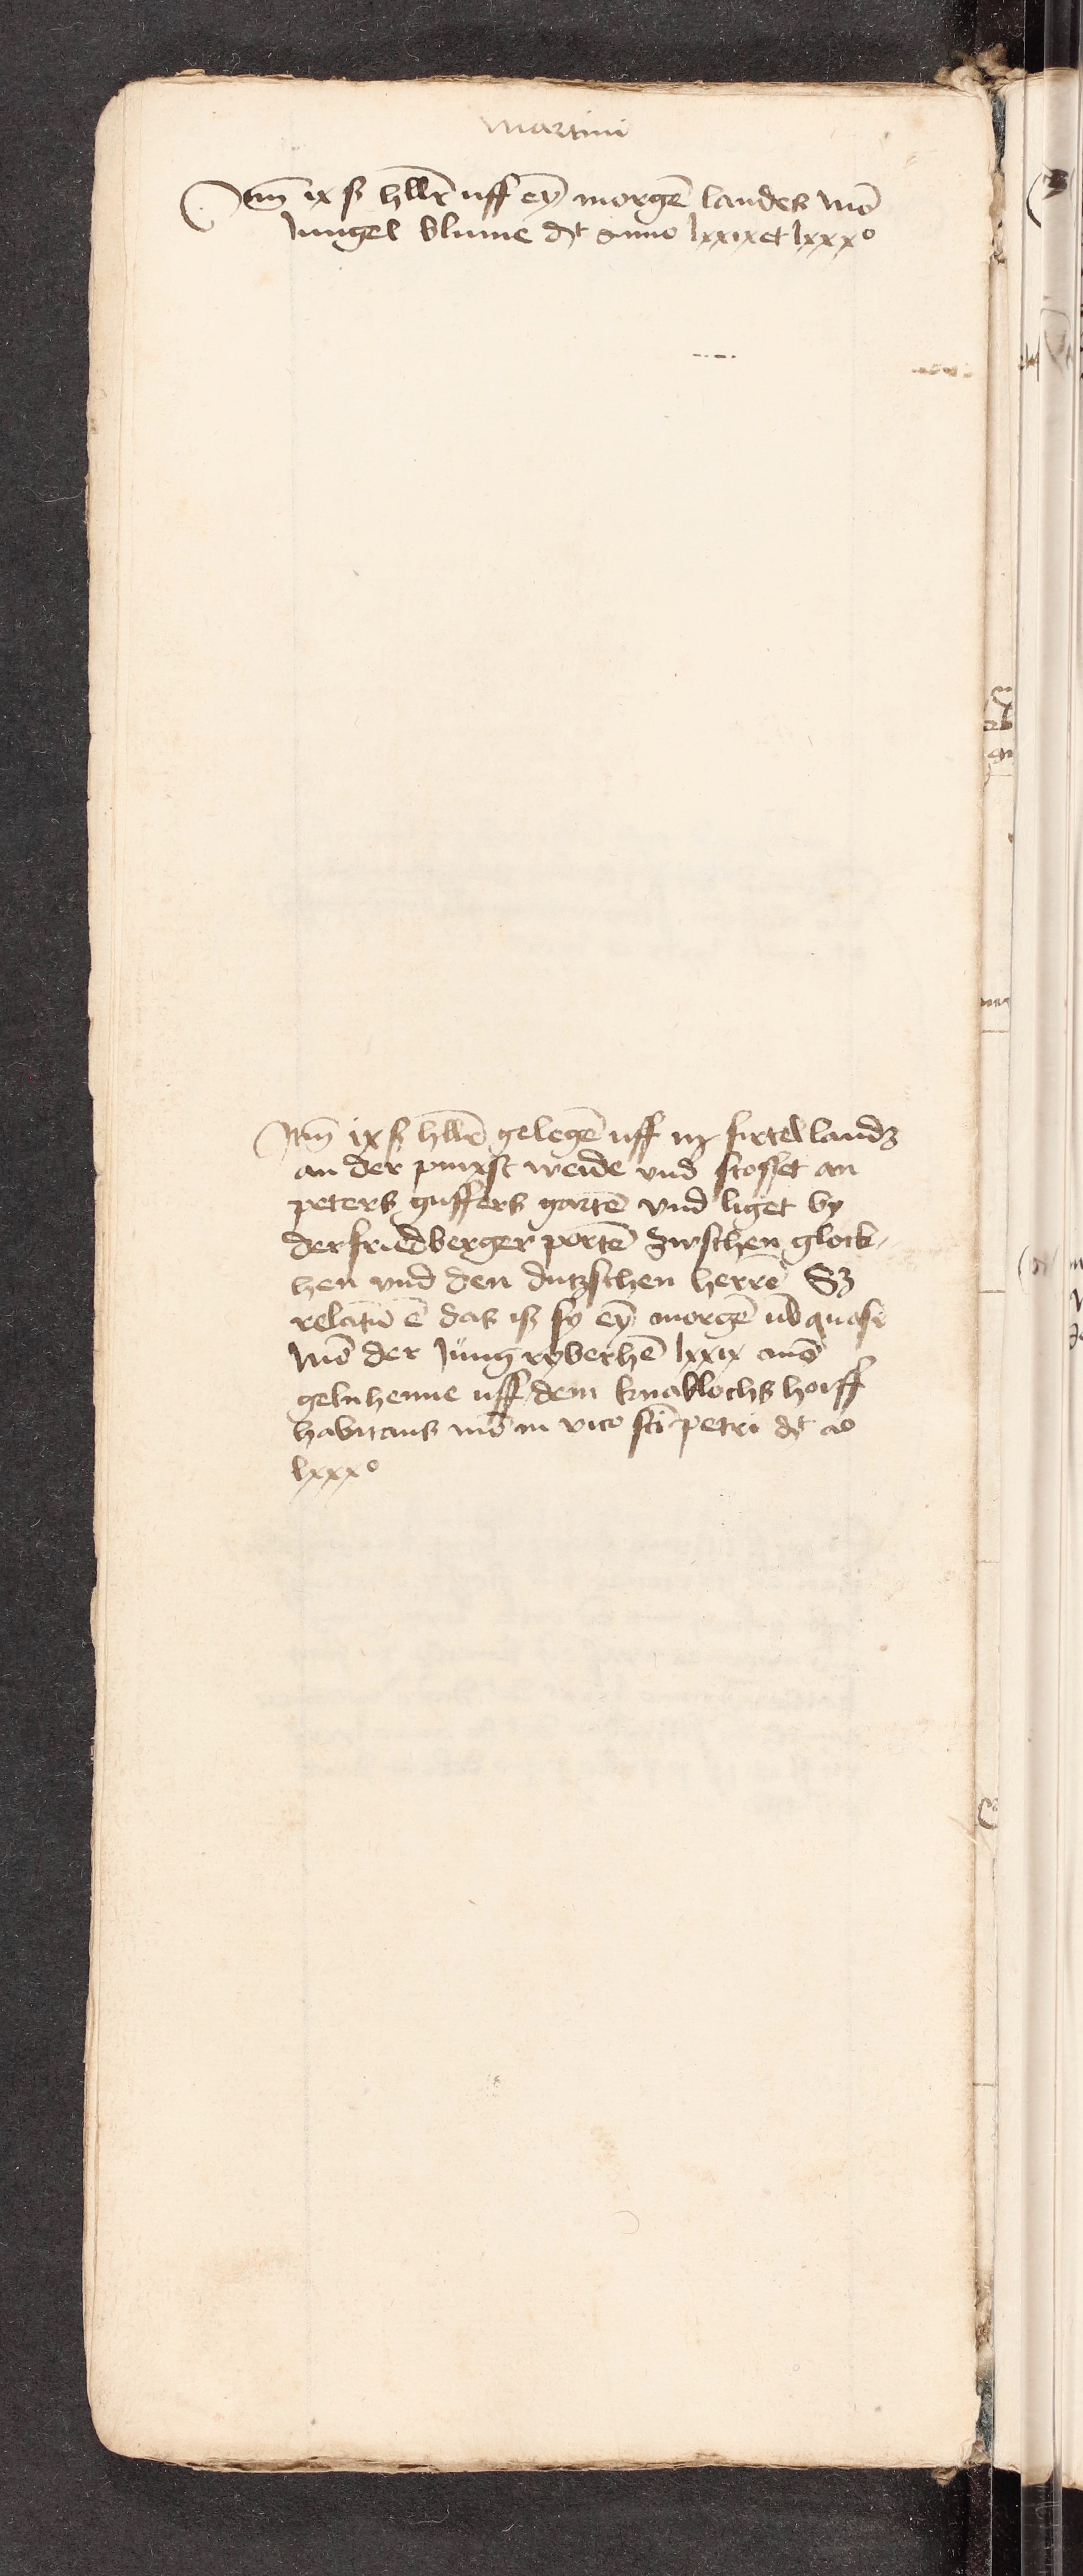 Martini
Itm̄ ix ß hllr̄ uff eȳ morgē landes mō
Jungel blume dt anno lxxix et lxxxº
Itm̄ ix ß hllr̄ gelegē uff iij firtel landʒ
an der pinxst weide vnd stosset an
peters guffers gartē vnd liget by
der friedberger portē zwschen glock-
hen vnd den dutzschen herrē Sʒ
relatū ē das iß sy eȳ morgē
mō der Jüng ryberhē lxxix mō
gelnhenne uff dem knablochs hoiff
habitans mō in vico sti petri dt aº
lxxxº